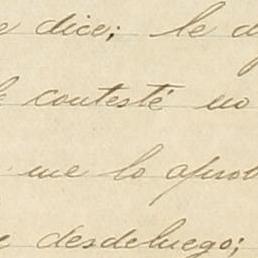 e dice; le d
le contesté no
me lo aprob
e desdeluego;